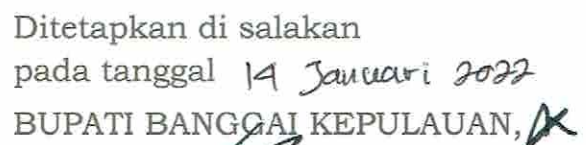 Ditetapkan di salakan
pada tanggal 14 Januari 2022
BUPATI BANGGAI KEPULAUAN,